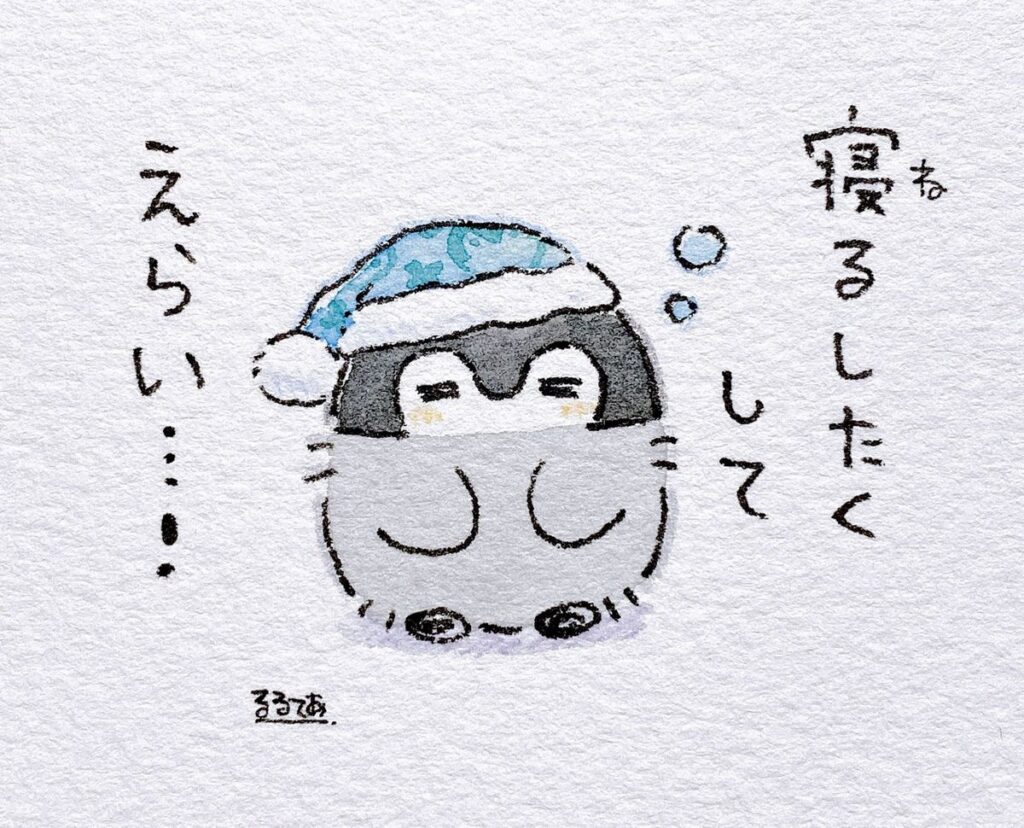 寝るしたく
ね
して
えらい…!
るるてあ.